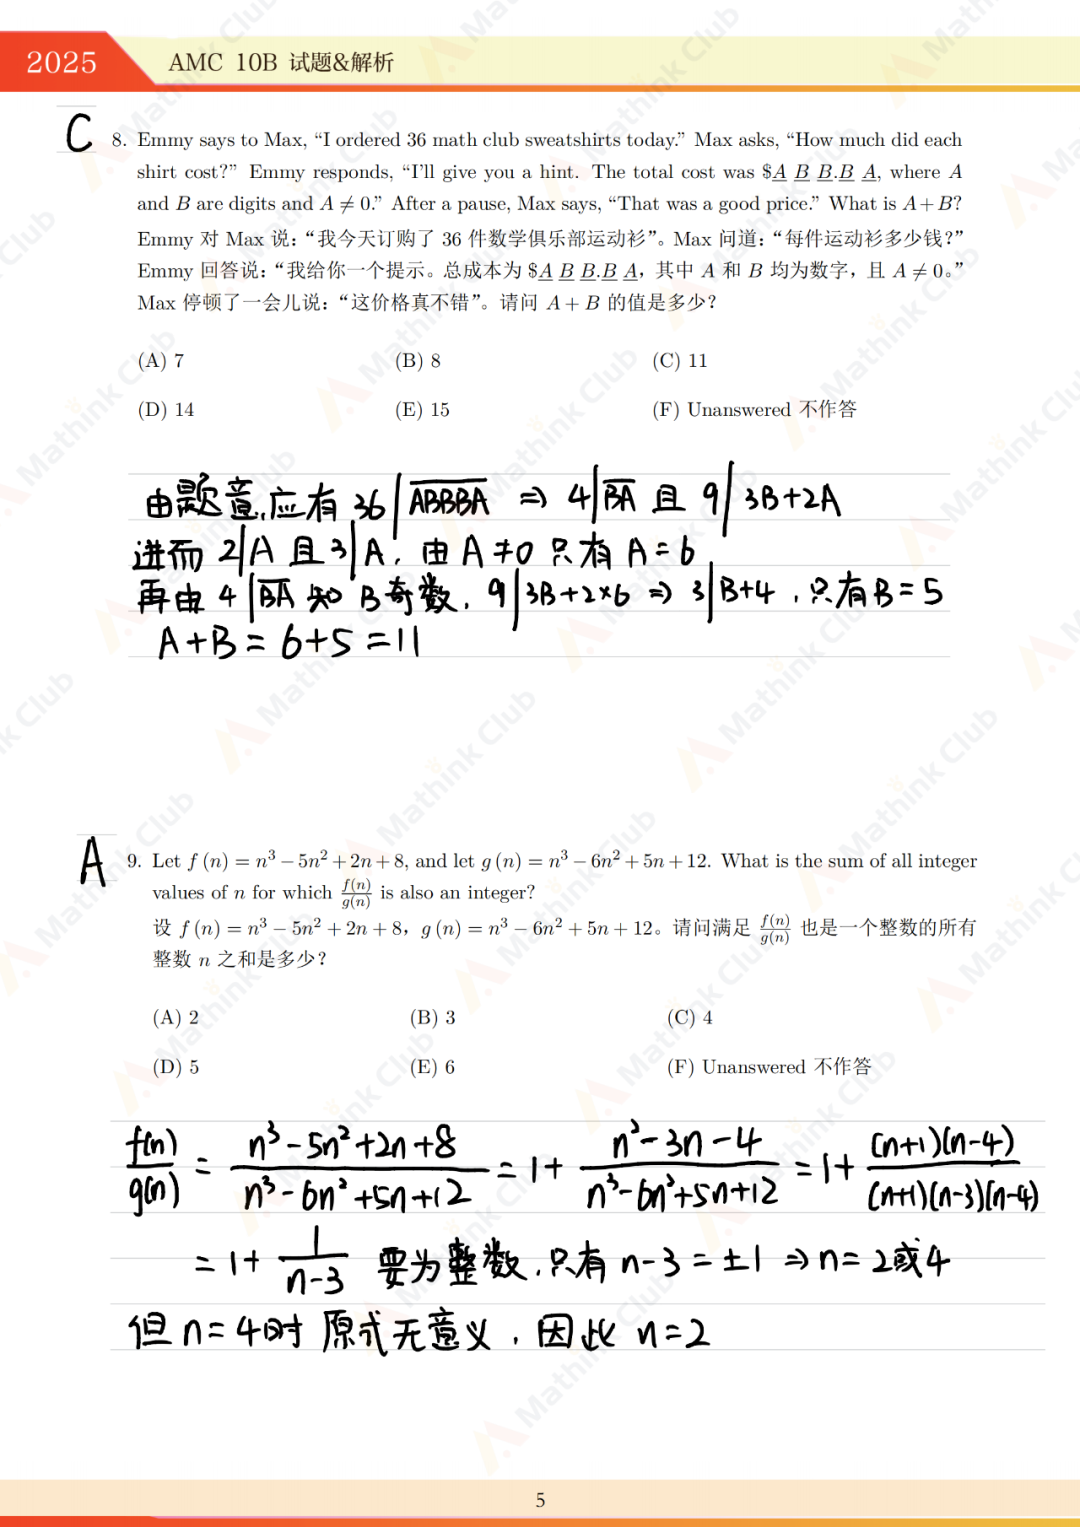 2025 AMC 10B 试题&解析
C
8. Emmy says to Max, “I ordered 36 math club sweatshirts today.” Max asks, “How much did each
shirt cost?” Emmy responds, “I’ll give you a hint. The total cost was $A B B.B A, where A
and B are digits and A ≠ 0.” After a pause, Max says, “That was a good price.” What is A + B?
Emmy 对 Max 说：“我今天订购了 36 件数学俱乐部运动衫”。Max 问道：“每件运动衫多少钱？”
Emmy 回答说：“我给你一个提示。总成本为 $A B B.B A，其中 A 和 B 均为数字，且 A ≠ 0。”
Max 停顿了一会儿说：“这价格真不错”。请问 A + B 的值是多少？
(A) 7 (B) 8 (C) 11
(D) 14 (E) 15 (F) Unanswered 不作答
由题意,应有 36|ABBBA ⇒ 4|BA 且 9|3B+2A
进而 2|A 且 3|A, 由 A≠0 只有 A=6
再由 4|BA 知 B奇数, 9|3B+2×6 ⇒ 3|B+4, 只有B=5
A+B=6+5=11
A
9. Let f (n) = n³ − 5n² + 2n + 8, and let g (n) = n³ − 6n² + 5n + 12. What is the sum of all integer
values of n for which f(n)/g(n) is also an integer?
设 f (n) = n³ − 5n² + 2n + 8，g (n) = n³ − 6n² + 5n + 12。请问满足 f(n)/g(n) 也是一个整数的所有
整数 n 之和是多少？
(A) 2 (B) 3 (C) 4
(D) 5 (E) 6 (F) Unanswered 不作答
f(n)/g(n) = (n³-5n²+2n+8)/(n³-6n²+5n+12) = 1+ (n²-3n-4)/(n³-6n²+5n+12) = 1+ (n+1)(n-4)/(n+1)(n-3)(n-4)
= 1+ 1/(n-3) 要为整数,只有 n-3=±1 ⇒ n=2或4
但 n=4时 原式无意义, 因此 n=2
5
Mathink Club